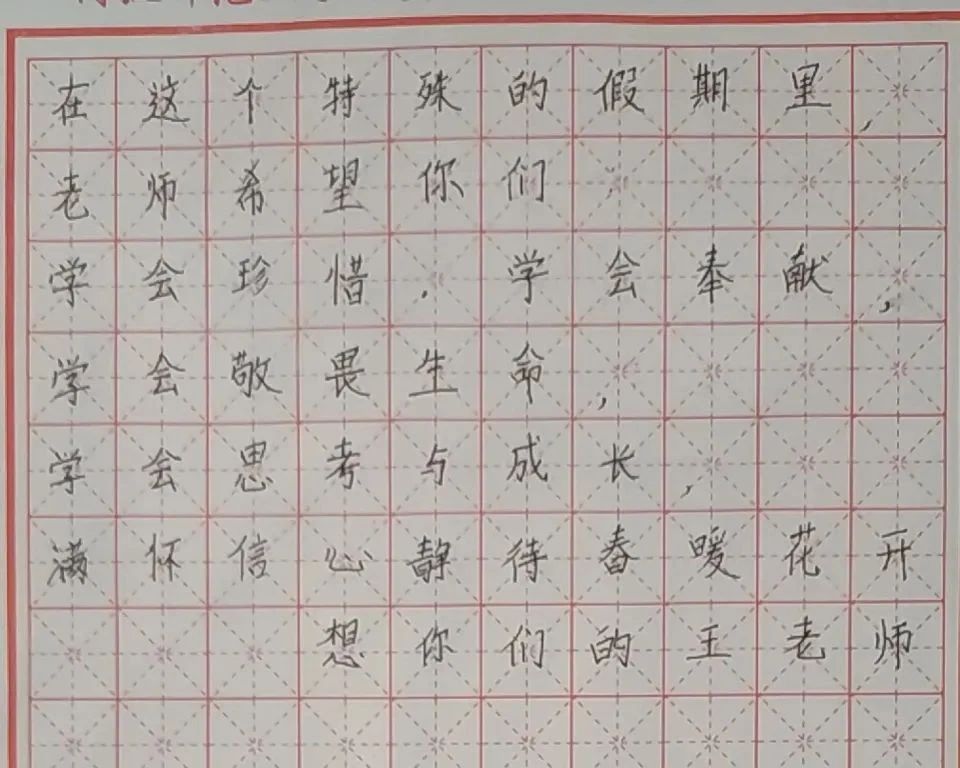 在这个特殊的假期里,
老师希望你们
学会珍惜.学会奉献,
学会敬畏生命,
学会思考与成长,
满怀信心静待春暖花开
想你们的王老师